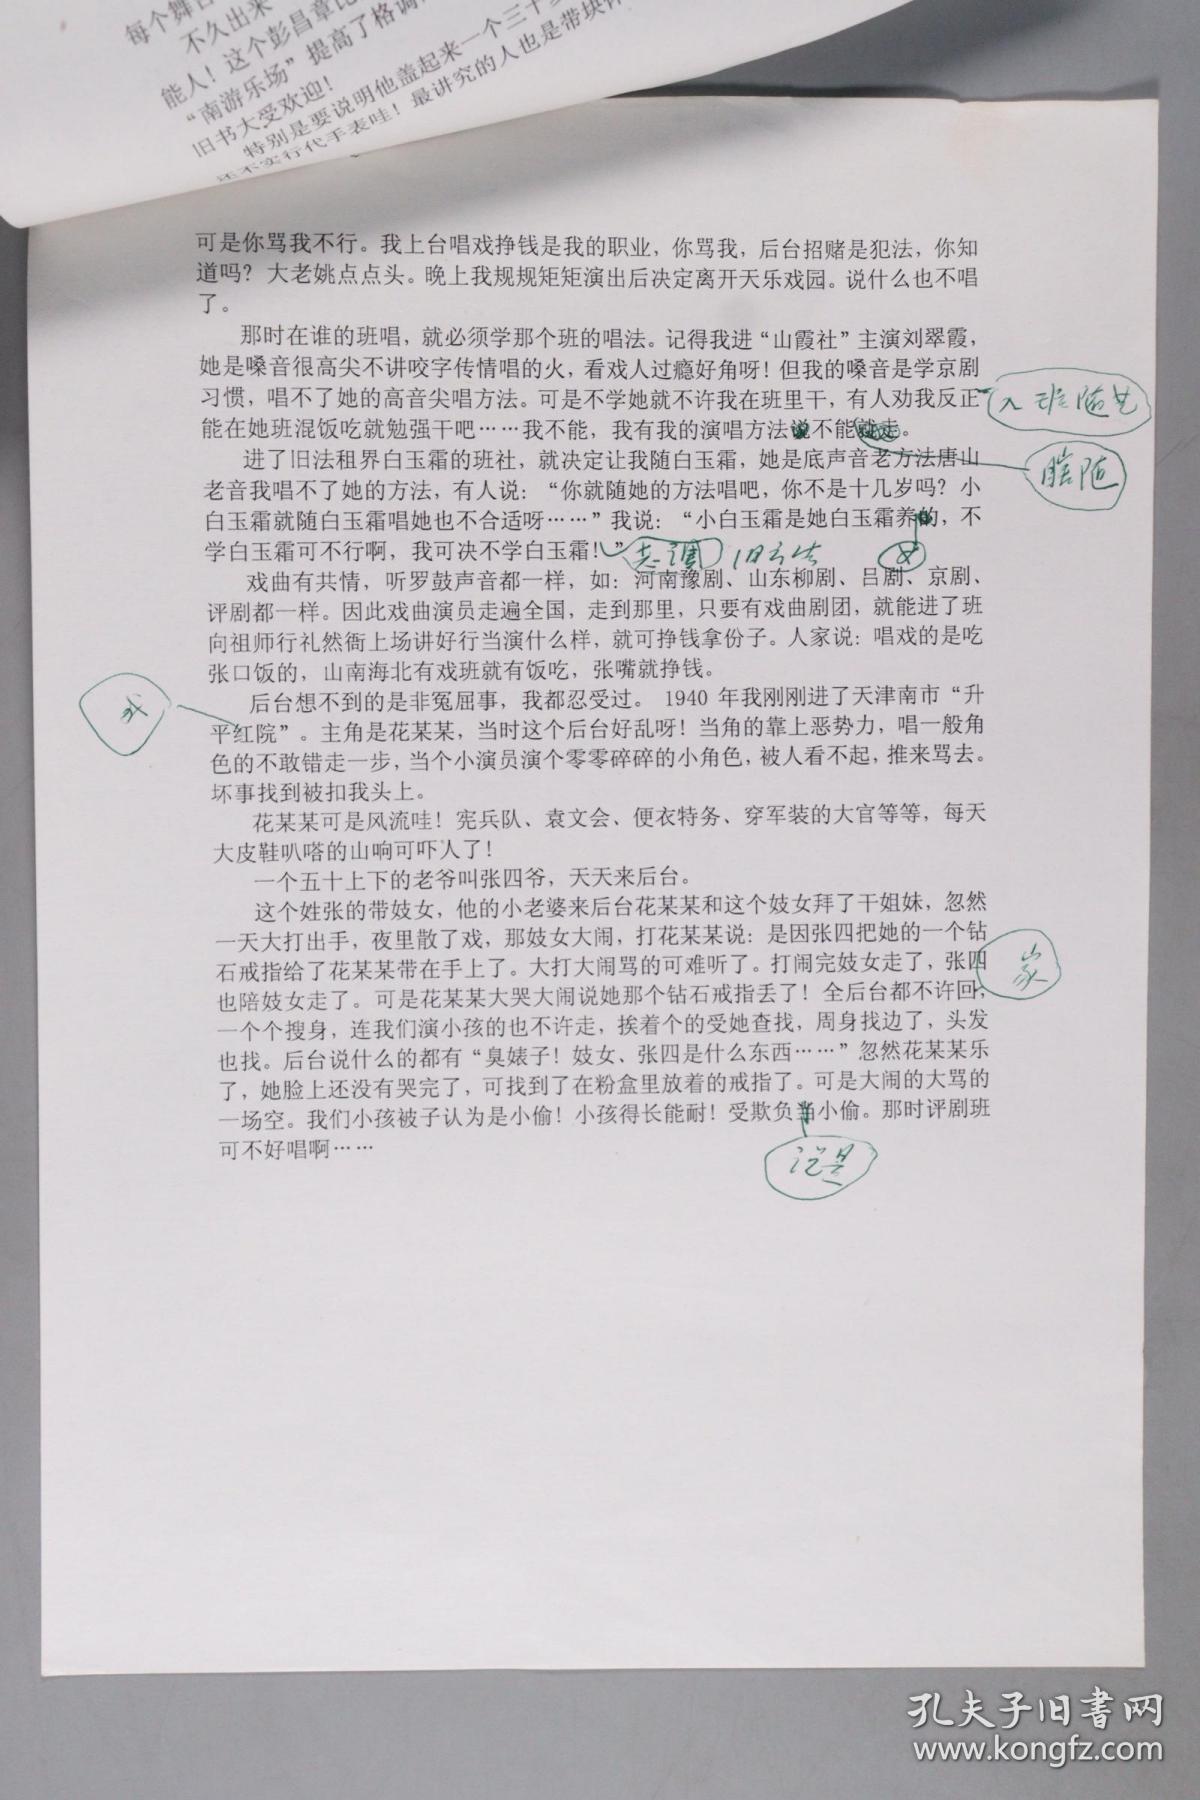 每个舞台
不久出来
能人！这个彭昌章比
“南游乐场”提高了格调
旧书大受欢迎！
特别是要说明他盖起来一个三十
还不实行代手表哇！最讲究的人也是带块怀
可是你骂我不行。我上台唱戏挣钱是我的职业，你骂我，后台招赌是犯法，你知
道吗？大老姚点点头。晚上我规规矩矩演出后决定离开天乐戏园。说什么也不唱
了。
那时在谁的班唱，就必须学那个班的唱法。记得我进“山霞社”主演刘翠霞，
她是嗓音很高尖不讲咬字传情唱的火，看戏人过瘾好角呀！但我的嗓音是学京剧
习惯，唱不了她的高音尖唱方法。可是不学她就不许我在班里干，有人劝我反正
入班随
能在她班混饭吃就勉强干吧……我不能，我有我的演唱方法 不能 。
瞎随
进了旧法租界白玉霜的班社，就决定让我随白玉霜，她是底声音老方法唐山
老音我唱不了她的方法，有人说：“你就随她的方法唱吧，你不是十几岁吗？小
白玉霜就随白玉霜唱她也不合适呀……”我说：“小白玉霜是她白玉霜养的，不
学白玉霜可不行啊，我可决不学白玉霜！”
女
戏曲有共情，听罗鼓声音都一样，如：河南豫剧、山东柳剧、吕剧、京剧、
评剧都一样。因此戏曲演员走遍全国，走到那里，只要有戏曲剧团，就能进了班
向祖师行礼然衙上场讲好行当演什么样，就可挣钱拿份子。人家说：唱戏的是吃
张口饭的，山南海北有戏班就有饭吃，张嘴就挣钱。
后台想不到的是非冤屈事，我都忍受过。 1940 年我刚刚进了天津南市“升
平红院”。主角是花某某，当时这个后台好乱呀！当角的靠上恶势力，唱一般角
色的不敢错走一步，当个小演员演个零零碎碎的小角色，被人看不起，推来骂去。
坏事找到被扣我头上。
花某某可是风流哇！宪兵队、袁文会、便衣特务、穿军装的大官等等，每天
大皮鞋叭嗒的山响可吓人了！
一个五十上下的老爷叫张四爷，天天来后台。
这个姓张的带妓女，他的小老婆来后台花某某和这个妓女拜了干姐妹，忽然
一天大打出手，夜里散了戏，那妓女大闹，打花某某说：是因张四把她的一个钻
石戒指给了花某某带在手上了。大打大闹骂的可难听了。打闹完妓女走了，张四
家
也陪妓女走了。可是花某某大哭大闹说她那个钻石戒指丢了！全后台都不许回，
一个个搜身，连我们演小孩的也不许走，挨着个的受她查找，周身找边了，头发
也找。后台说什么的都有“臭婊子！妓女、张四是什么东西……”忽然花某某乐
了，她脸上还没有哭完了，可找到了在粉盒里放着的戒指了。可是大闹的大骂的
一场空。我们小孩被子认为是小偷！小孩得长能耐！受欺负当小偷。那时评剧班
说是
可不好唱啊……
孔夫子旧书网
www.kongfz.com